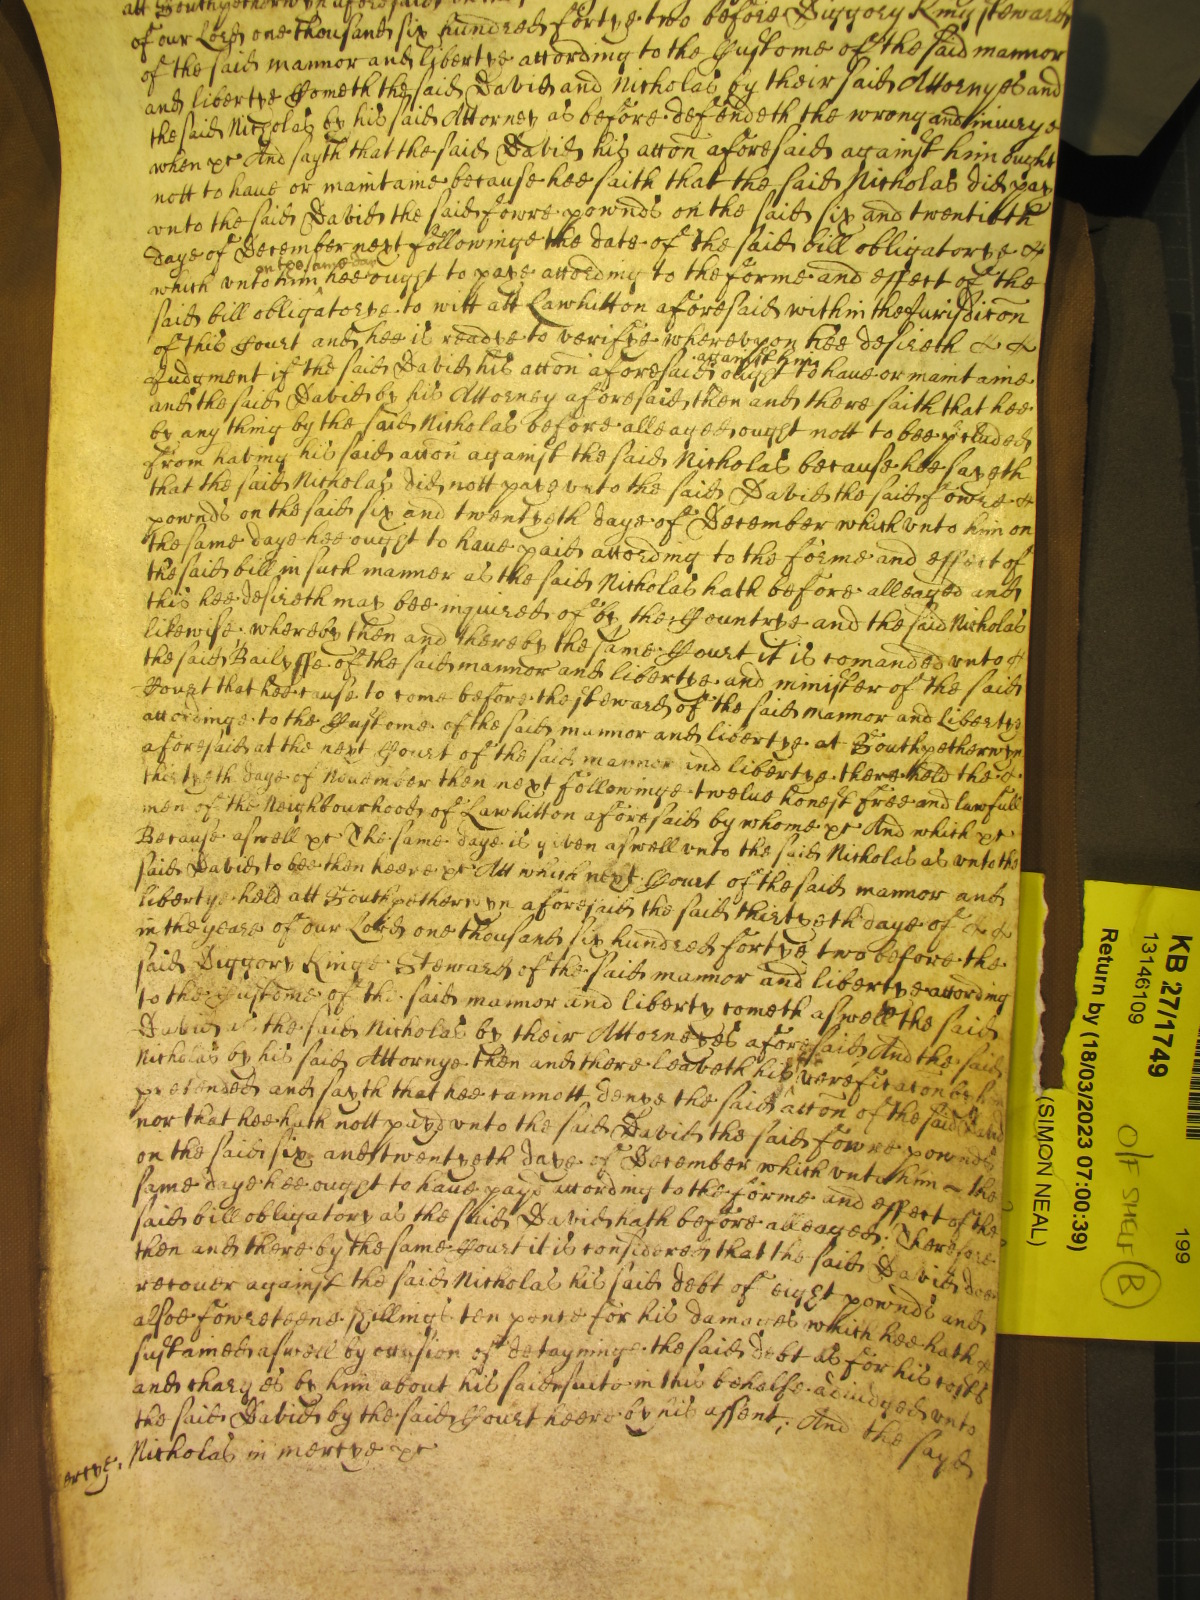 att Southpetherwyn aforesaid
of our Lord one thousand six hundred fortye two before Diggory King steward
of the said mannor and libertye according to the Custome of the said mannor
and libertye Cometh the said David and Nicholas by their said Attornyes and
the said Nicholas by his said Attorney as before defendeth the wrong and iniurye
when &c And sayth that the said David his accon aforesaid against him ought
nott to haue or maintaine because hee saith that the said Nicholas did pay
vnto the said David the said fowre pownds on the said six and twentieth
daye of December next followinge the date of the said bill obligatorye &
which vnto him on the same day hee ought to paye according to the forme and effect of the
said bill obligatorye to witt att Lawhitton aforesaid within the Jurisdiccon
of this Court and hee is readye to verifye wherevpon hee desireth & &
Judgment if the said David his accon aforesaid against him ought to haue or maintaine
and the said David by his Attorney aforesaid then and there saith that hee
by any thing by the said Nicholas before alleaged ought nott to bee pcluded
from having his said accon against the said Nicholas because hee sayeth
that the said Nicholas did nott paye vnto the said David the said fowre &
pownds on the said six and twentyeth daye of December which vnto him on
the same daye hee ought to haue paid according to the forme and effect of
the said bill in such manner as the said Nicholas hath before alleaged and
this hee desireth may bee inquired of by the Countrye and the said Nicholas
likewise whereby then and thereby the same Court it is comanded vnto &
the said Bailyffe of the said mannor and libertye and minister of the said
Court that hee cause to come before the steward of the said mannor and libertye
accordinge to the Custome of the said mannor and libertye at Southpetherwyn
aforesaid at the next Court of the said mannor and libertye there held the &
thirtyeth daye of November then next followinge twelue honest free and lawfull
men of the Neighbourhood of Lawhitton aforesaid by whome &c And which &c
Because aswell &c The same daye is given aswell vnto the said Nicholas as vnto the
said David to bee then heere &c Att which next Court of the said mannor and
libertye held att Southpetherwyn aforesaid the said thirtyeth daye of & &
in the yeare of our Lord one thousand six hundred fortye two before the
said Diggory Kinge Steward of the said mannor and libertye according
to the Custome of the said mannor and liberty cometh aswell the said
David as the said Nicholas by their Attorneyes aforesaid And the said
Nicholas by his said Attornye then and there leaveth his verificacon by him
pretended and sayth that hee cannott denye the said accon of the said David
nor that hee hath nott payd vnto the said David the said fowre pownds
on the said six and twentyeth daye of December which vnto him the
same daye hee ought to haue payd according to the forme and effect of the
said bill obligatory as the said David hath before alleaged; Therefore
then and there by the same Court it is considered that the said David doe
recouer against the said Nicholas his said debt of eight pownds and
alsoe fowreteene shillings ten pence for his damages which hee hath &
sustained aswell by occasion of detayninge the said debt as for his costs
and charges by him about his said suite in this behalfe adiudged vnto
the said David by the said Court heere by his assent; And the sayd
Nicholas in mercye &c
KB 27/1749
13146109
199
Return by (18/03/2023 07:00:39)
(SIMON NEAL)
O/F SHELF B